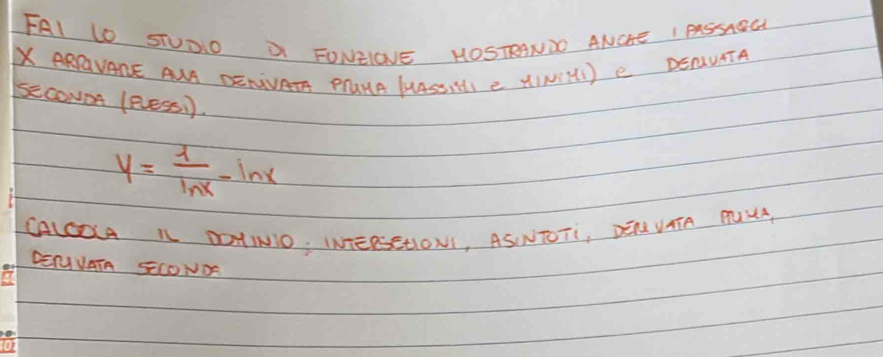 FAI LO STUDIO DI FUNZIONE MOSTRANDO ANCHE I PASSAGGI
X ARRIVARE ALLA DERIVATA PRIMA (MASSIMI e MINIMI) e DERIVATA
SECONDA (FLESSI).
y = 1/lnx - lnx
CALCOLA IL DOMINIO, INTERSEZIONI, ASINTOTI, DERIVATA PRIMA,
DERIVATA SECONDA